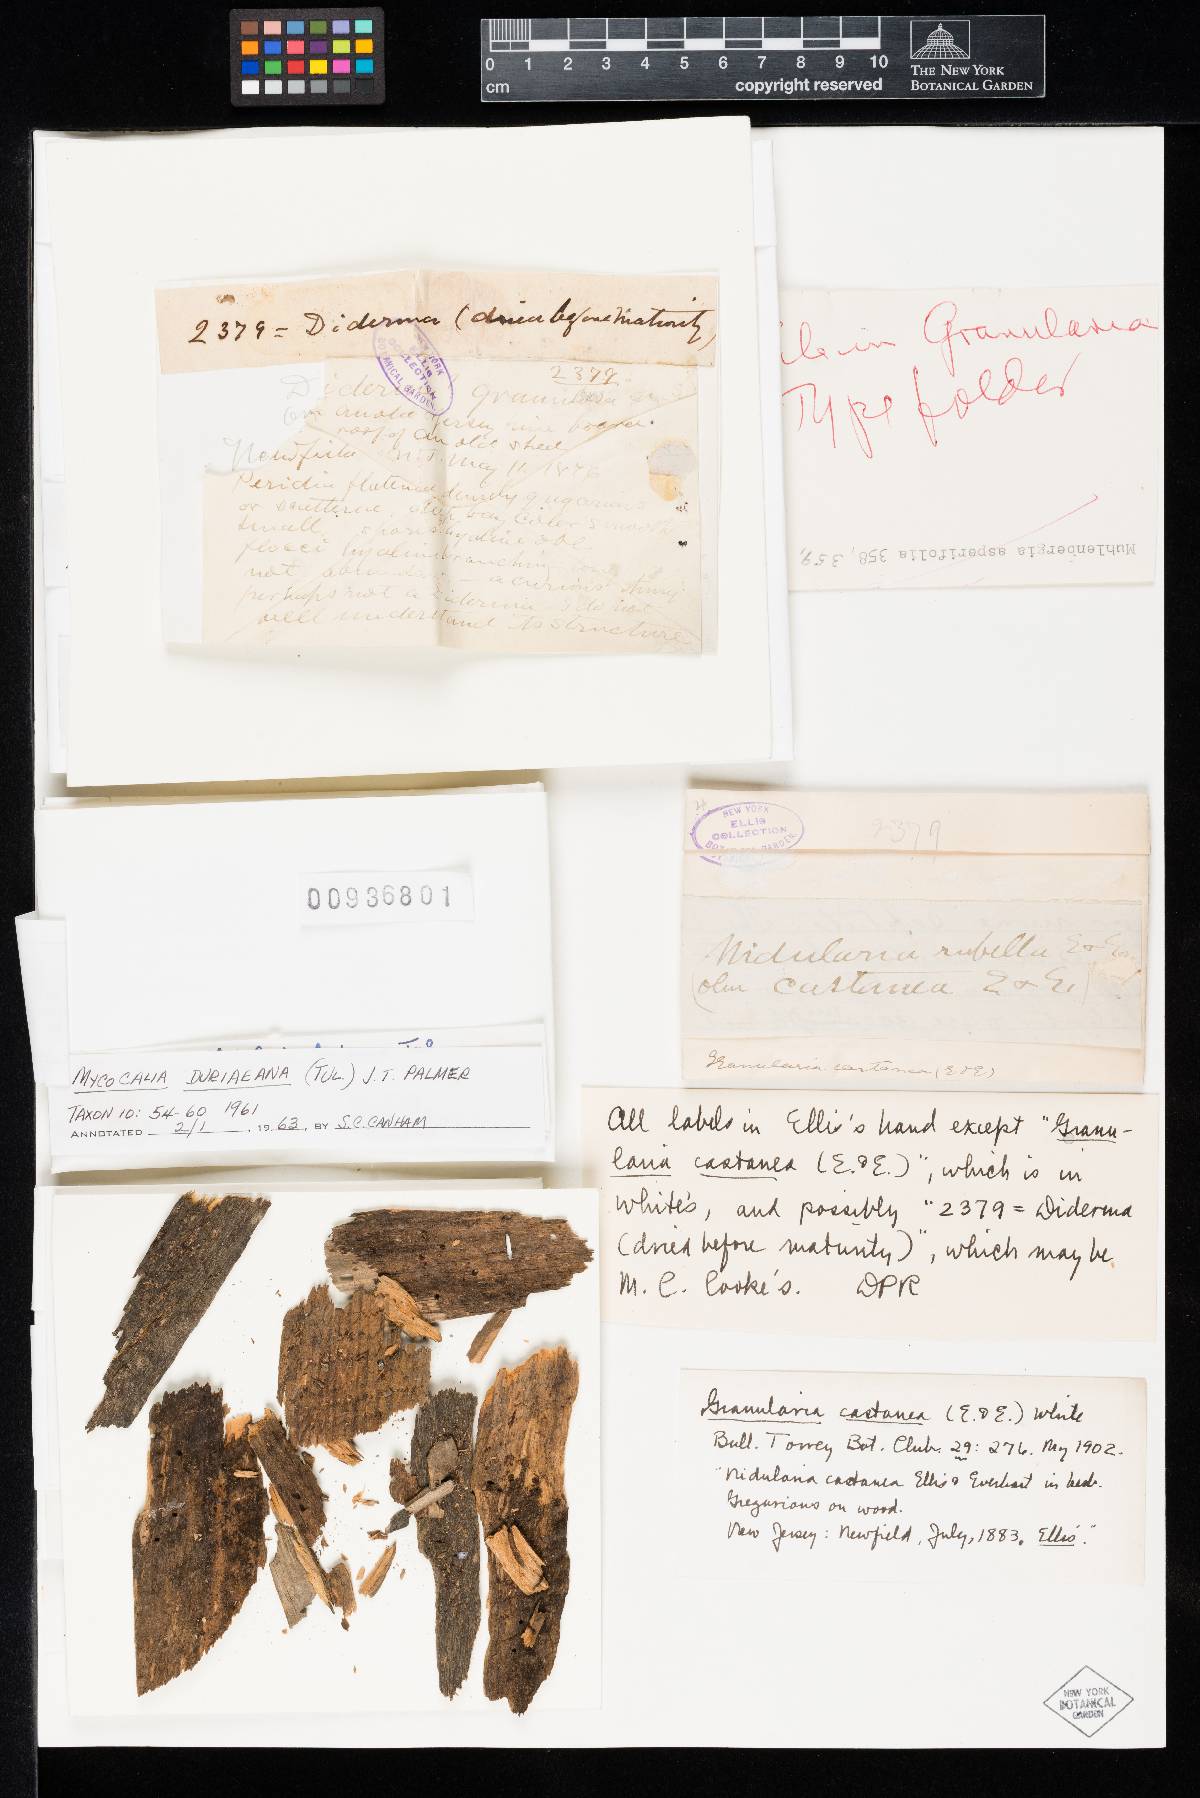 0 1 2 3 4 5 6 7 8 9 10
cm
copyright reserved
THE NEW YORK
BOTANICAL GARDEN
2379 = Diderma (dried before maturity)
ELLIS
COLLECTION
BOTANICAL GARDEN
2379
roof of an old shed
Newfield N.J. May 11, 1876
Peridia flattened densely gregarious
or
small, spores hyaline
flocci hyaline branching
not abundant — a curious thing
perhaps not a Diderma I do not
well understand its structure
file in Granularia
Type folder
Muhlenbergia asperifolia 358, 359,
NEW YORK
ELLIS
COLLECTION
BOTANICAL GARDEN
2379
Nidularia rubella E & E
(olim castanea E & E)
Granularia castanea (E & E)
00936801
MYCOCALIA DURIAEANA (TUL.) J.T. PALMER
TAXON 10: 54-60 1961
ANNOTATED 2/1, 1963, BY S.C. CANHAM
All labels in Ellis's hand except "Granu-
laria castanea (E. & E.)", which is in
White's, and possibly "2379 = Diderma
(dried before maturity)", which may be
M. C. Cooke's. DPR
Granularia castanea (E. & E.) White
Bull. Torrey Bot. Club. 29: 276. My 1902.
"Nidularia castanea Ellis & Everhart in herb.
Gregarious on wood.
New Jersey: Newfield, July, 1883, Ellis."
NEW YORK
BOTANICAL
GARDEN